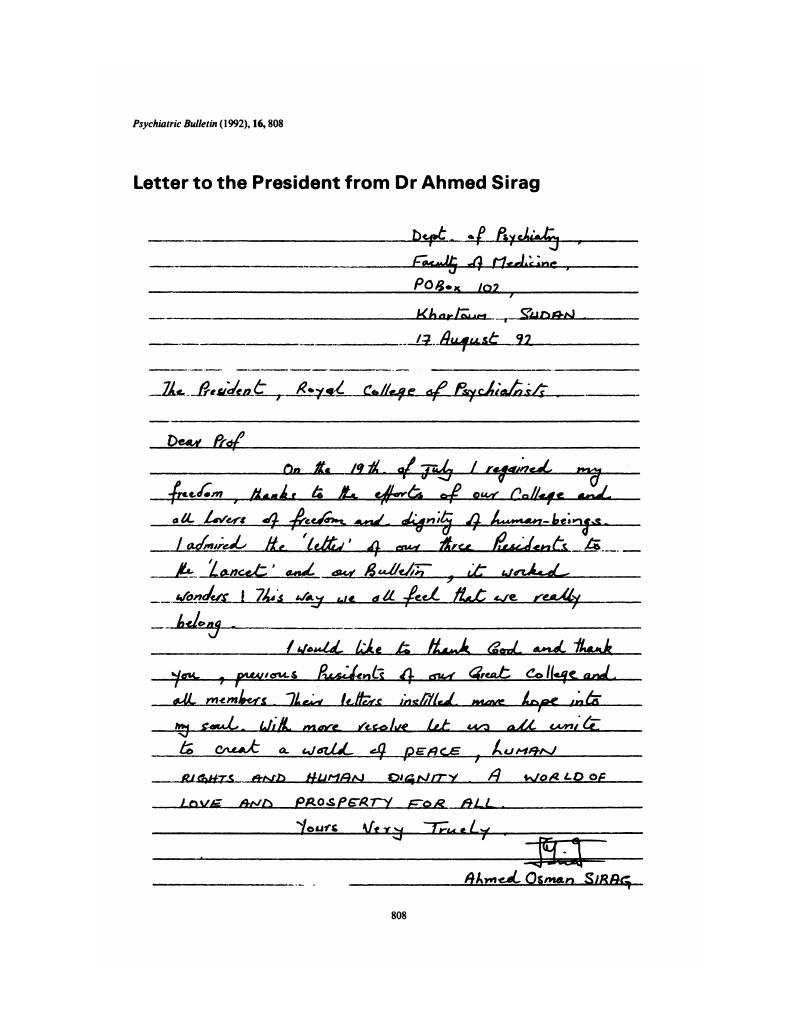 Psychiatric Bulletin (1992), 16, 808
Letter to the President from Dr Ahmed Sirag
Dept. of Psychiatry,
Faculty of Medicine,
POBox 102,
Khartoum, SUDAN
17 August 92
The President, Royal College of Psychiatrists.
Dear Prof
On the 19th. of July I regained my
freedom, thanks to the efforts of our College and
all Lovers of freedom and dignity of human-beings.
I admired the 'letter' of our three Presidents to
the 'Lancet' and our Bulletin, it worked
wonders! This way we all feel that we really
belong.
I would like to thank God and thank
you, previous Presidents of our Great College and
all members. Their letters instilled more hope into
my soul. With more resolve let us all unite
to creat a world of PEACE, HUMAN
RIGHTS AND HUMAN DIGNITY. A WORLD OF
LOVE AND PROSPERTY FOR ALL.
Yours Very Truely.
Ahmed Osman SIRAG
808